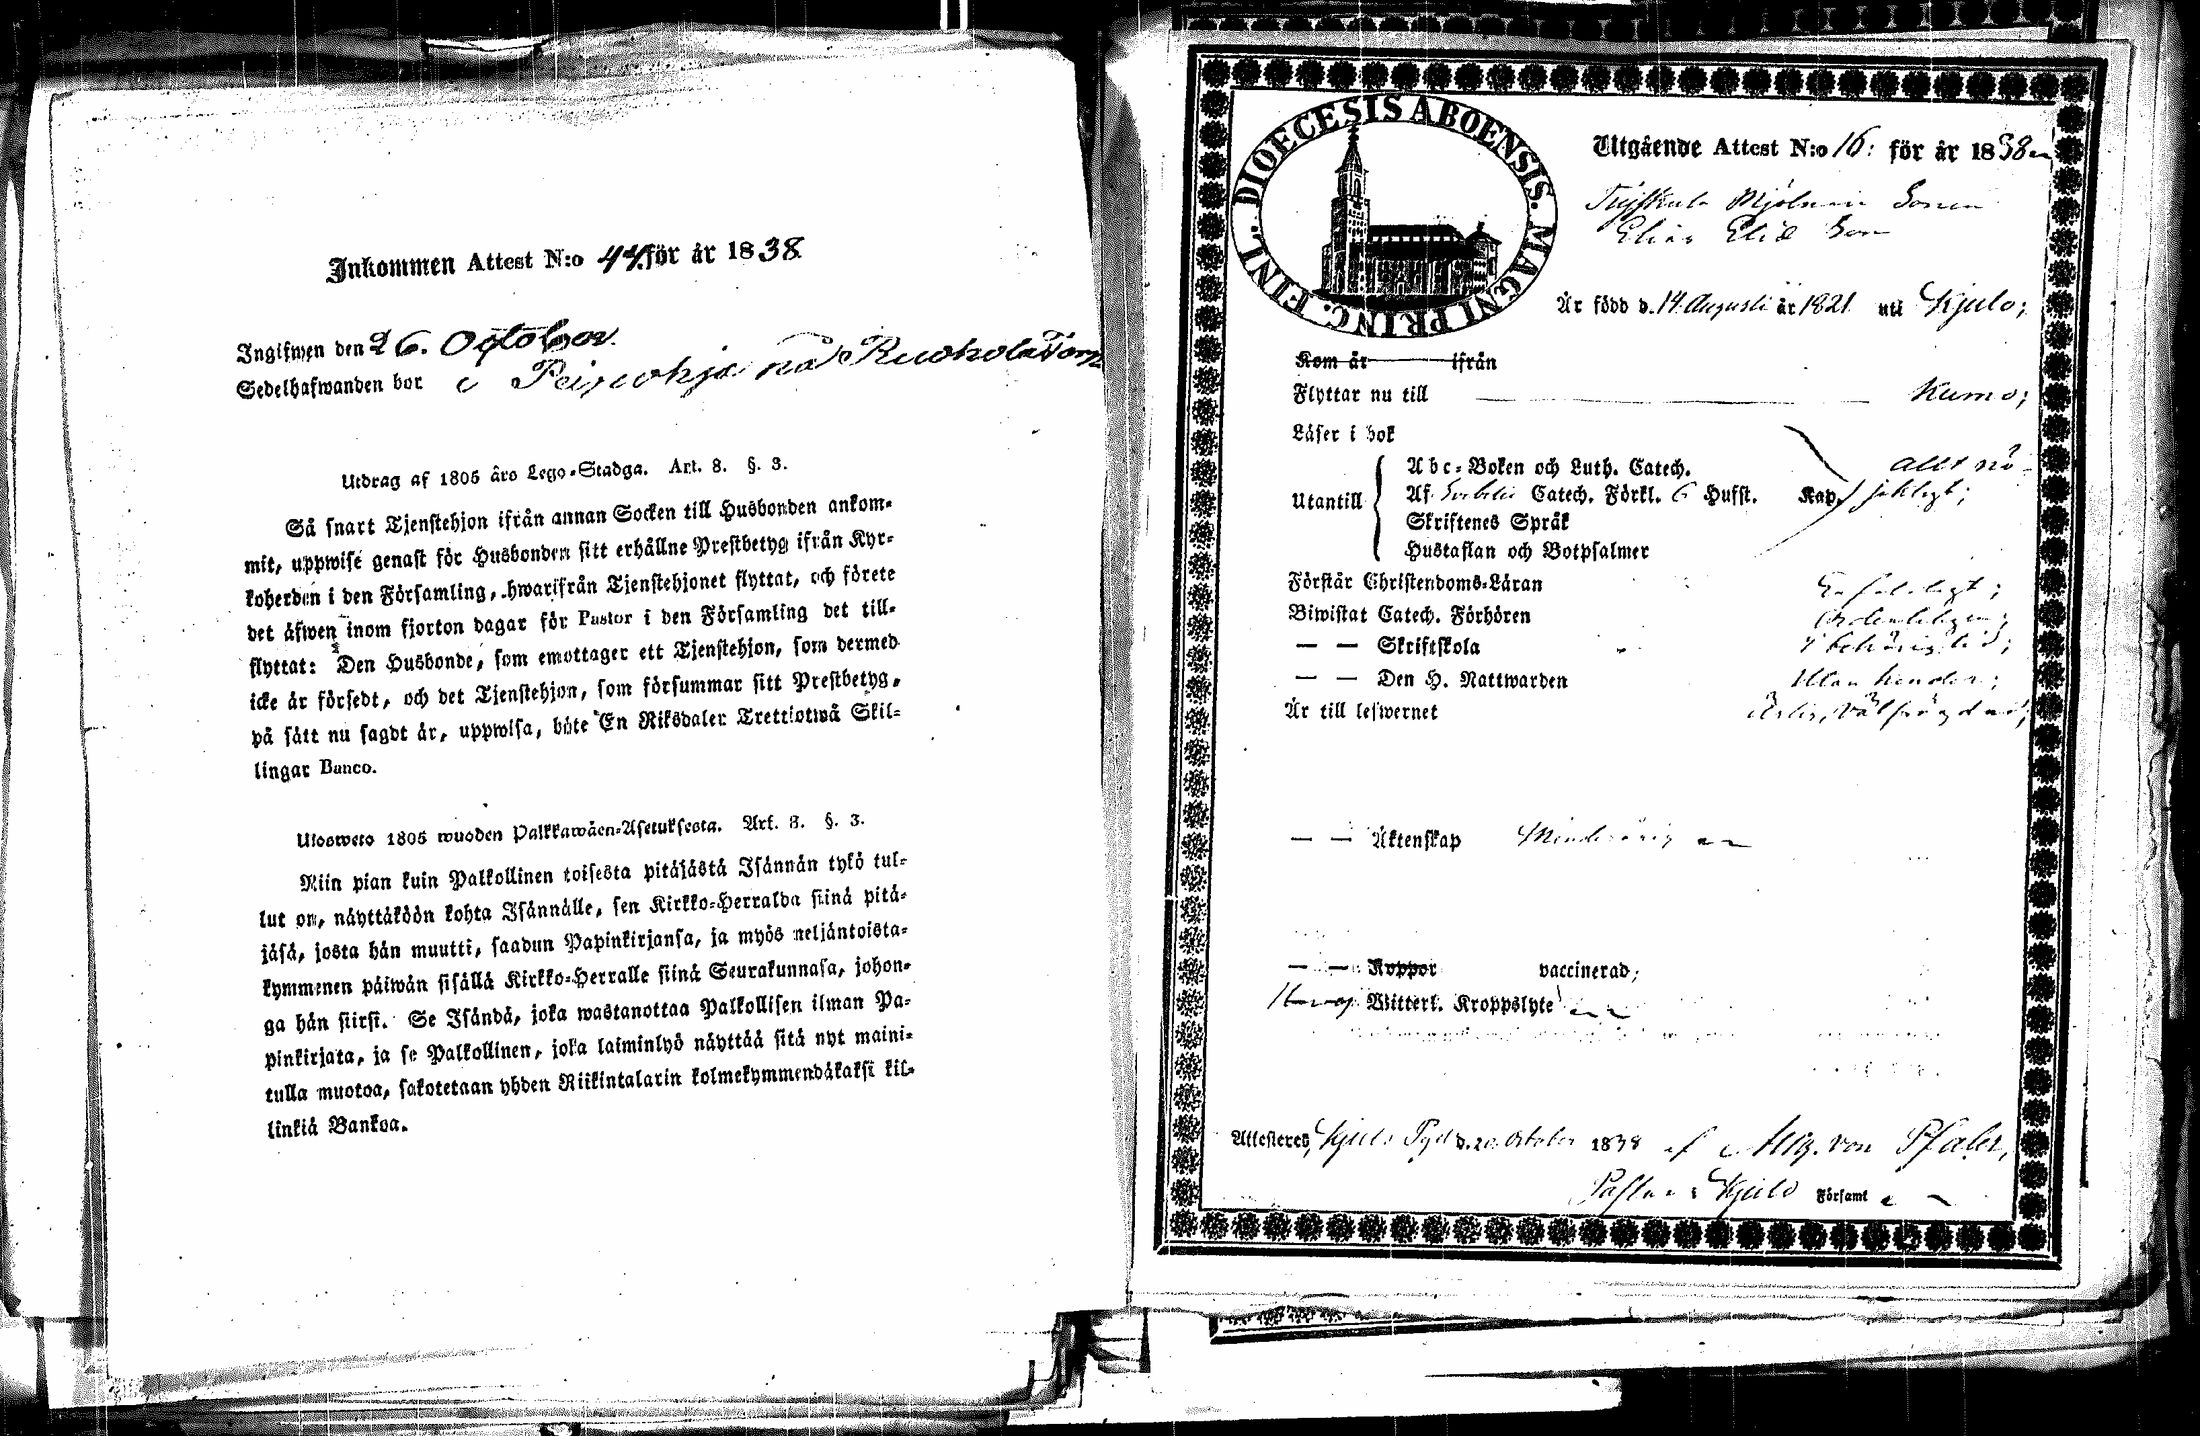 Inkommen Attest N:o 44. för år 1838.
Ingifwen den 26. October.
Sedelhafwanden bor i Peipohja nå Ruohola Torp
Utdrag af 1805 års Lego-Stadga. Art. 8. §. 3.
Så snart Tjenstehjon ifrån annan Socken till Husbonden ankom-
mit, uppwise genast för Husbonden sitt erhållne Prestbetyg ifrån Kyr-
koherden i den Församling, hwarifrån Tjenstehjonet flyttat, och förete
det äfwen inom fjorton dagar för Pastor i den Församling det till-
flyttat: Den Husbonde, som emottager ett Tjenstehjon, som dermed
icke är försedt, och det Tjenstehjon, som försummar sitt Prestbetyg,
på sätt nu sagdt är, uppwisa, böte En Riksdaler Trettiotwå Skil-
lingar Banco.
Ulosweto 1805 wuoden Palkkawäen-Asetuksesta. Art. 8. §. 3.
Niin pian kuin Palkollinen toisesta pitäjästä Isännän tykö tul-
lut on, näyttäköön kohta Isännälle, sen Kirkko-Herralda siinä pitä-
jäsä, josta hän muutti, saadun Papinkirjansa, ja myös neljäntoista-
kymmenen päiwän sisällä Kirkko-Herralle siinä Seurakunnasa, johon-
ga hän siirsi. Se Isändä, joka wastanottaa Palkollisen ilman Pa-
pinkirjata, ja se Palkollinen, joka laiminlyö näyttää sitä nyt maini-
tulla muotoa, sakotetaan yhden Riikintalarin kolmekymmendäkaksi kil-
linkiä Bankoa.
DIOECESIS ABOENSIS. MAGNI PRINC. FINL.
Utgående Attest N:o 16: för år 1838
Mjölnare Sonen
Elias Eliæ Son
Är född d. 14 Augusti år 1821 uti Kjulo;
Kom år ifrån
Flyttar nu till Kumo;
Läser i bok
Abc-Boken och Luth. Catech. allt nö-
Utantill Af Catech. Förkl. 6 Hufst. Kap. jaktigt;
Skriftenes Språk
Hustaflan och Botpsalmer
Förstår Christendoms-Läran Enfaldigt;
Biwistat Catech. Förhören Ordenteligen;
— — Skriftskola i behörig tid;
— — Den H. Nattwarden Utan hinder;
Är till lefwernet Ärlig, Välfrägdad;
— — Äktenskap Minderårig
— — Koppor vaccinerad;
Witterl. Kroppslyte
Attesteres, Kjulo Pgd d. 20 October 1838 af Aug. von Pfaler,
Pastor i Kjulo Församl